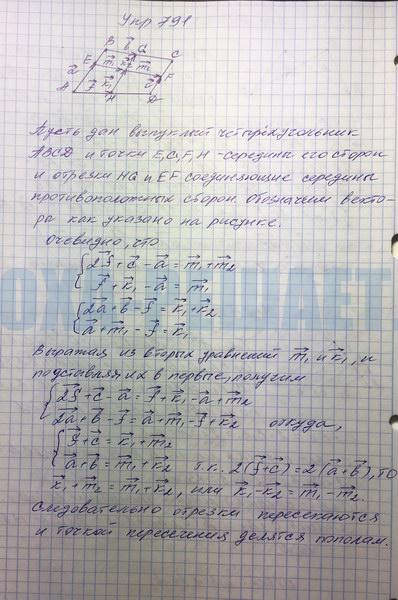 Упр 791
B b G C
E m₁ k₂ m₂ F
a k₁ c
A f H D
Пусть дан выпуклый четырёхугольник
ABCD и точки E,G,F,H -середины его сторон
и отрезки HG и EF соединяющие середины
противоположных сторон обозначим векто-
ра как указано на рисунке.
очевидно, что
2f + c - a = m₁ + m₂
f + k₁ - a = m₁
2a + b - f = k₁ + k₂
a + m₁ - f = k₁
Выражая из вторых уравнений m₁ и k₁, и
подставляя их в первые, получим
2f + c - a = f + k₁ - a + m₂
2a + b - f = a + m₁ - f + k₂ откуда,
f + c = k₁ + m₂
a + b = m₁ + k₂ т.к. 2(f + c) = 2(a + b), то
k₁ + m₂ = m₁ + k₂, или k₁ - k₂ = m₁ - m₂.
следовательно отрезки пересекаются
и точкой пересечения делятся пополам.